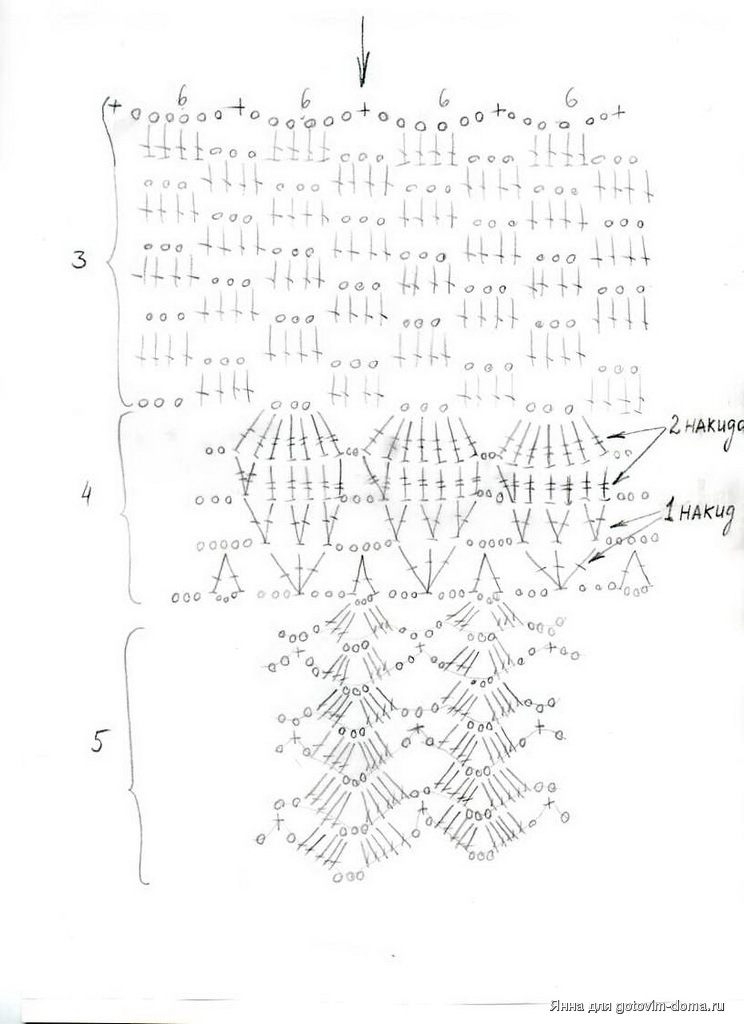 6 6 6 6
3
2 накида
4
1 накид
5
Янна для gotovim-doma.ru